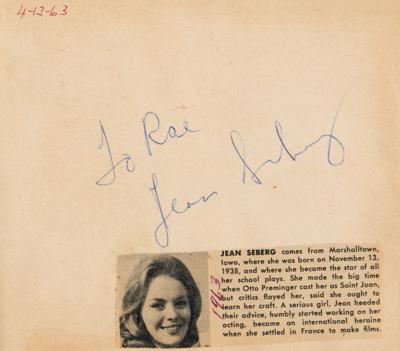 4-13-63
To Rae
Jean Seberg
JEAN SEBERG comes from Marshalltown,
Iowa, where she was born on November 13,
1938, and where she became the star of all
her school plays. She made the big time
when Otto Preminger cast her as Saint Joan,
but critics flayed her, said she ought to
learn her craft. A serious girl, Jean heeded
their advice, humbly started working on her
acting, became an international heroine
when she settled in France to make films.
1963